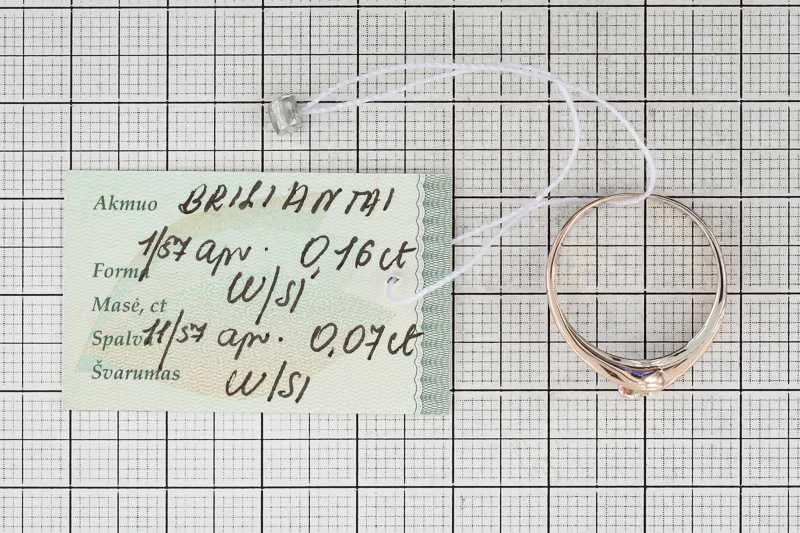 Akmuo BRILIANTAI
1/57 apv. 0,16 ct
Forma
W/SI
Masė, ct
Spalva 11/57 apv. 0,07 ct
Švarumas
W/SI